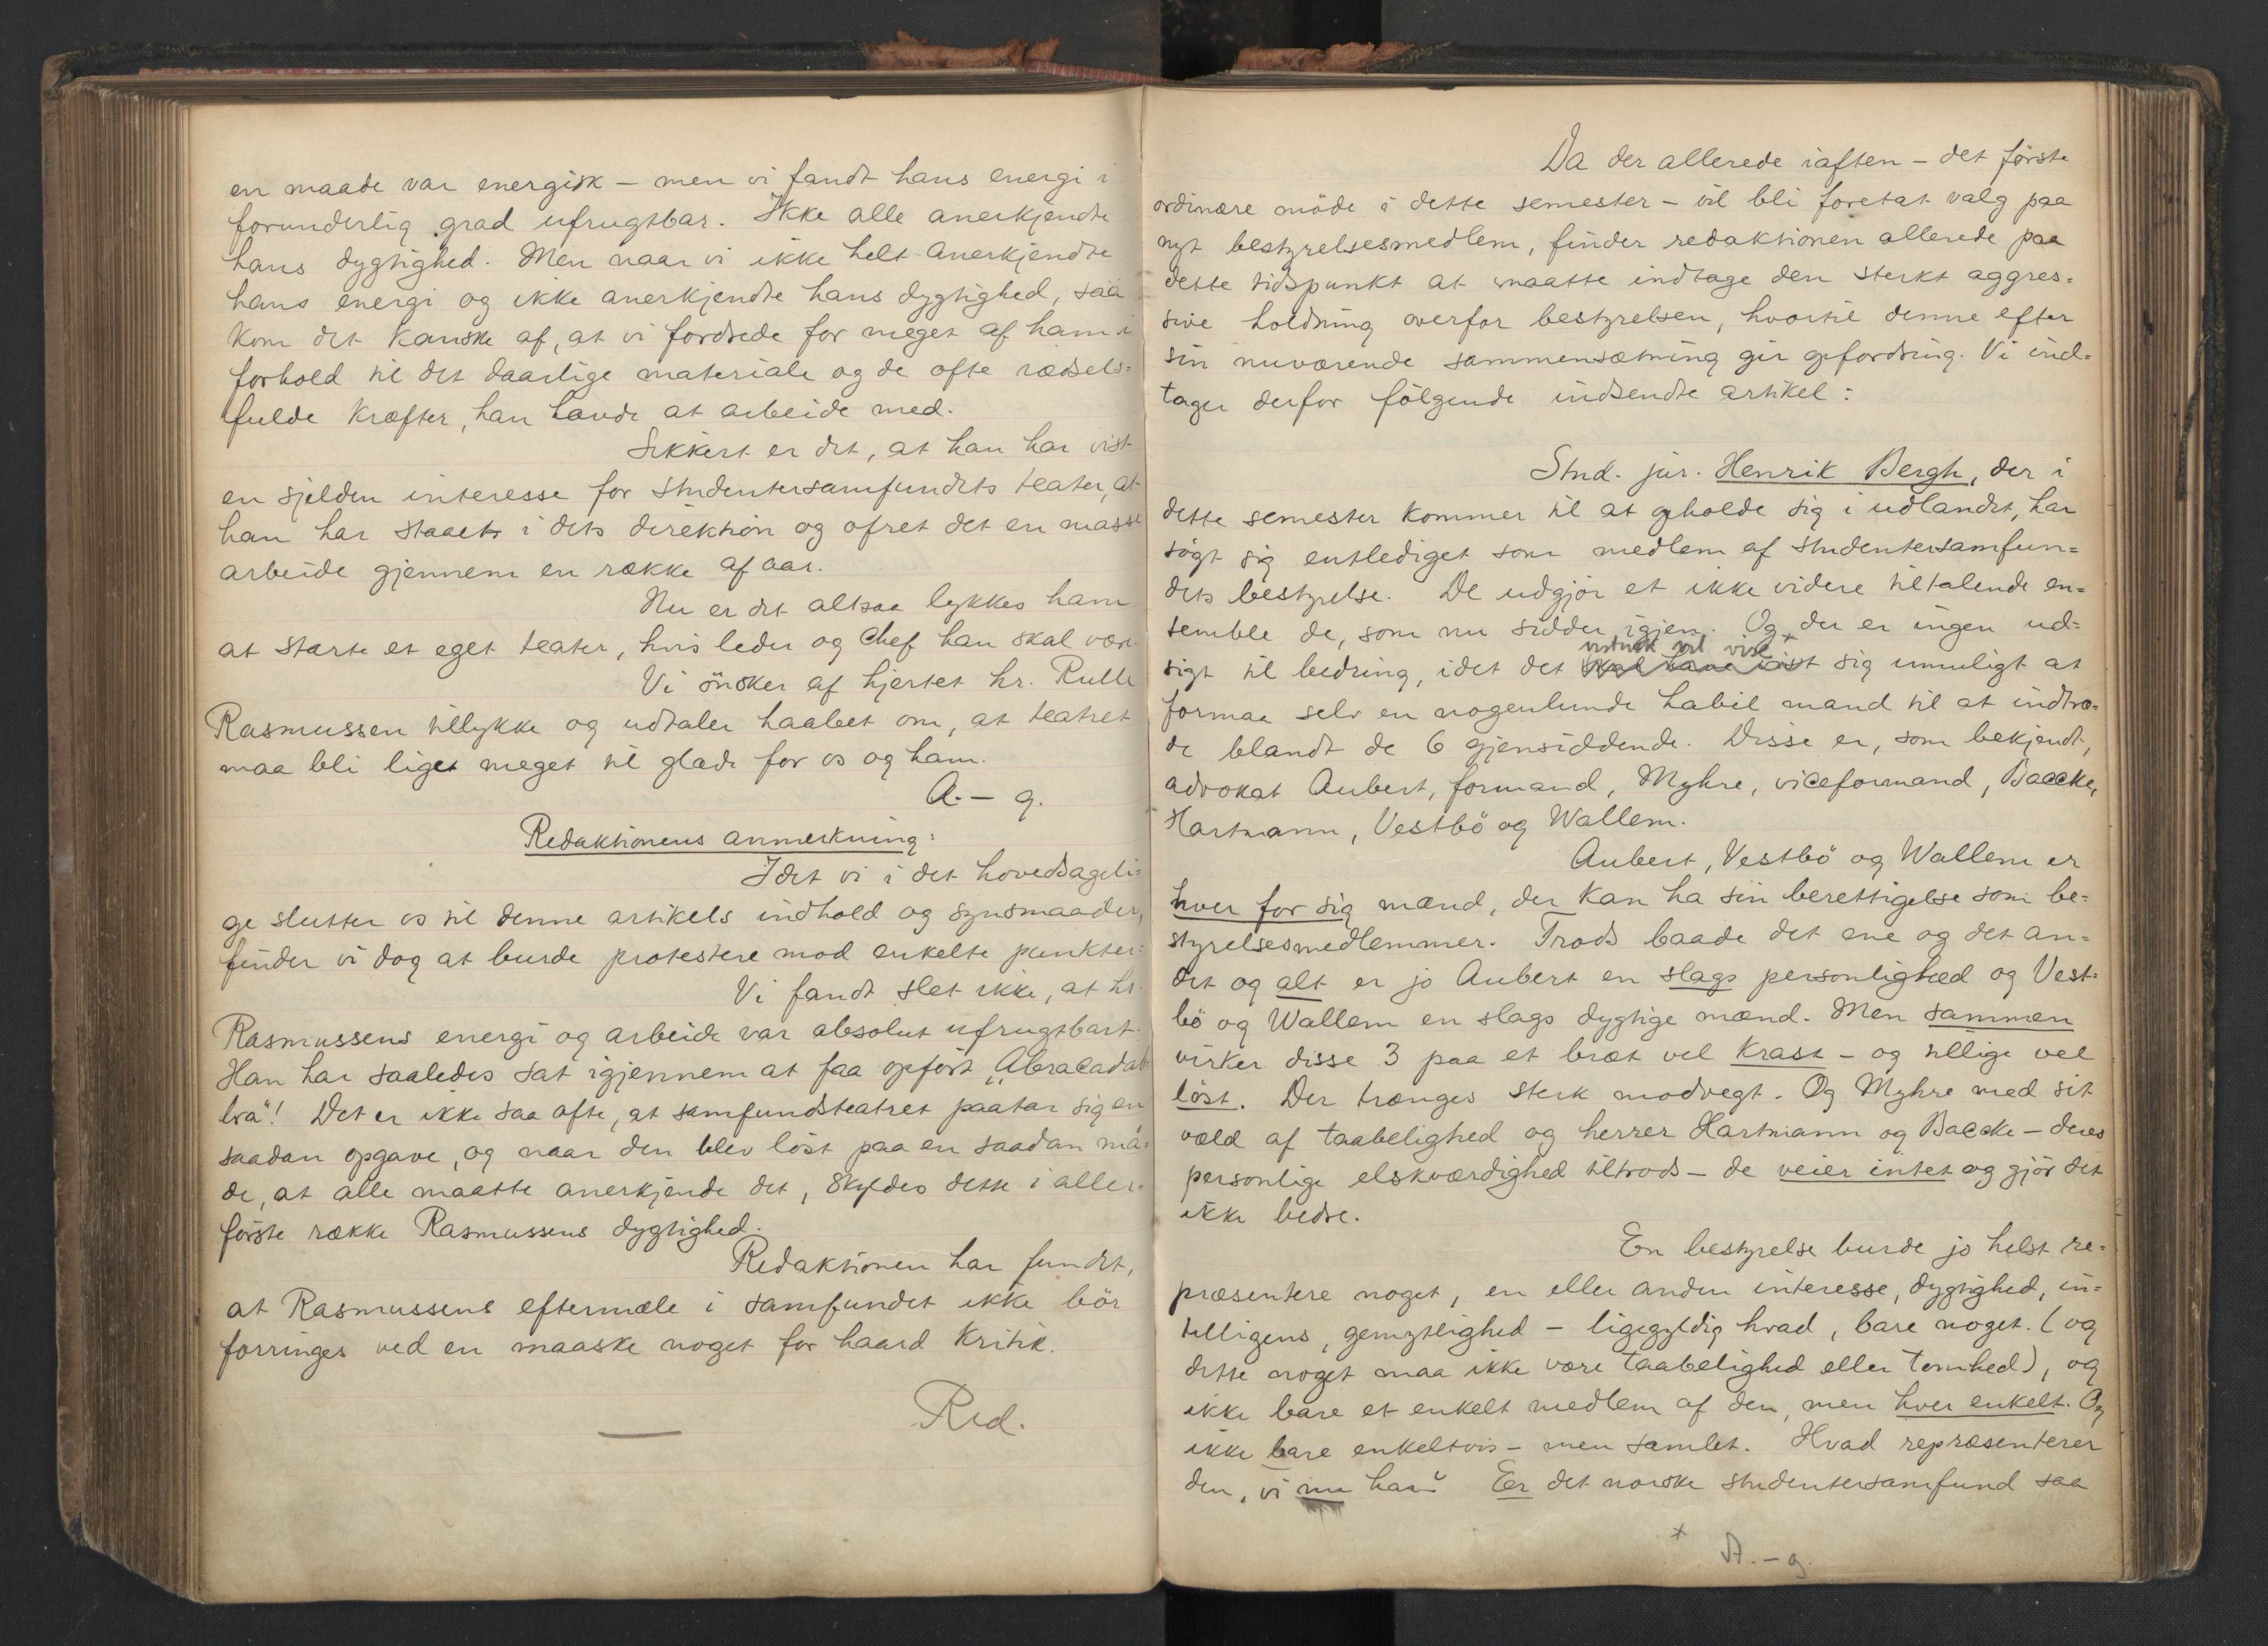 en maade var energisk – men vi fandt hans energi i
forunderlig grad ufrugtbar. Ikke alle anerkjendte
hans dygtighed. Men naar vi ikke helt anerkjendte
hans energi og ikke anerkjendte hans dygtighed, saa
kom det kanske af, at vi fordrede for meget af ham i
forhold til det daarlige materiale og de ofte rædsels=
fulde kræfter, han havde at arbeide med.
Sikkert er det, at han har vist
en sjelden interesse for studentersamfundets teater, at
han har staaet i dets direktion og ofret det en masse
arbeide gjennem en række af aar.
Nu er det altsaa lykkes ham
at starte et eget teater, hvis leder og chef han skal være.
Vi önsker af hjertet hr. Rulle
Rasmussen tillykke og udtaler haabet om, at teatret
maa bli liget meget til glæde for os og ham.
A. – g.
Redaktionens anmerkning:
Idet vi i det hovedsageli=
ge slutter os til denne artikels indhold og synsmaader,
finder vi dog at burde protestere mod enkelte punkter:
Vi fandt slet ikke, at hr.
Rasmussens energi og arbeide var absolut ufrugtbart.
Han har saaledes sat igjennem at faa opfört „Abracadab=
bra"! Det er ikke saa ofte, at samfundsteatret paatar sig en
saadan opgave, og naar den blev löst paa en saadan må=
de, at alle maatte anerkjende det, skyldes dette i aller=
förste række Rasmussens dygtighed.
Redaktionen har fundet,
at Rasmussens eftermæle i samfundet ikke bör
forringes ved en maaske noget for haard kritik.
Red.
Da der allerede iaften – det förste
ordinære möde i dette semester – vil bli foretat valg paa
nyt bestyrelsesmedlem, finder redaktionen allerede paa
dette tidspunkt at maatte indtage den sterkt aggres=
sive holdning overfor bestyrelsen, hvortil denne efter
sin nuværende sammensætning gir opfordring. Vi ind=
tager derfor fölgende indsendte artikel:
Stud. jur. Henrik Bergh, der i
dette semester kommer til at opholde sig i udlandet, har
sögt sig entlediget som medlem af studentersamfun=
dets bestyrelse. De udgjör et ikke videre tiltalende en=
semble de, som nu sidder igjen. Og der er ingen ud=
vistnok vil vise +
sigt til bedring, idet det skal have vist sig umuligt at
formaa selv en nogenlunde habil mand til at indtræ=
de blandt de 6 gjensiddende. Disse er, som bekjendt,
advokat Aubert, formand, Myhre, viceformand, Baccke,
Hartmann, Vestbö og Wallem.
Aubert, Vestbö og Wallem er
hver for sig mænd, der kan ha sin berettigelse som be=
styrelsesmedlemmer. Trods baade det ene og det an=
det og alt er jo Aubert en slags personlighed og Vest=
bö og Wallem en slags dygtige mænd. Men sammen
virker disse 3 paa et bræt vel krast – og tillige vel
löst. Der trænges sterk modvegt. Og Myhre med sit
væld af taabelighed og herrer Hartmann og Baccke – deres
personlige elskværdighed tiltrods – de veier intet og gjör det
ikke bedre.
En bestyrelse burde jo helst re=
præsentere noget, en eller anden interesse, dygtighed, in=
telligens, gemytlighed – ligegyldig hvad, bare noget. (og
dette noget maa ikke være taabelighed eller tomhed), og
ikke bare et enkelt medlem af den, men hver enkelt. Og
ikke bare enkeltvis – men samlet. Hvad repræsenterer
den, vi nu har? Er det norske studentersamfund saa
+ A. – g.